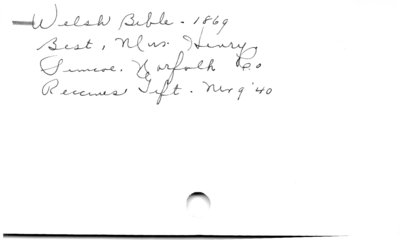 Welsh Bible - 1869
Best, Mrs. Henry,
Simcoe. Norfolk Co
Received Gift. Nov 9 '40